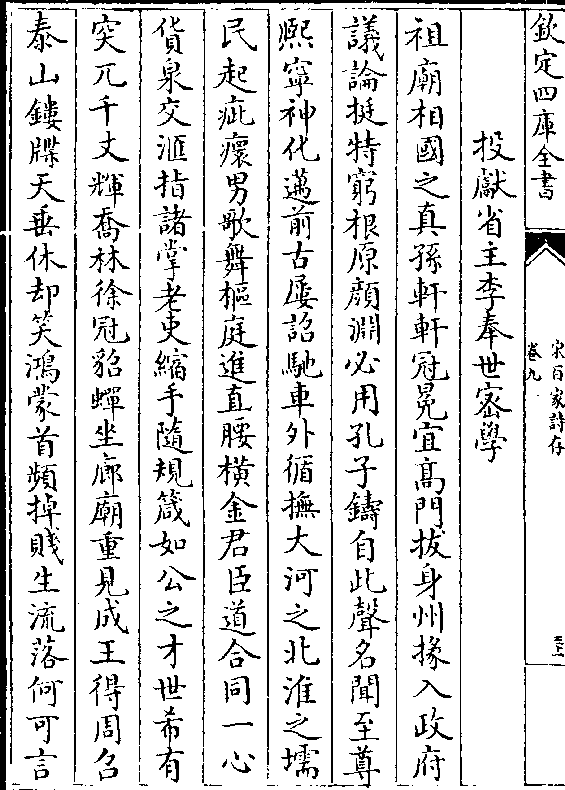 欽定四庫全書
宋百家詩存
卷九
投獻省主李奉世宻學
祖廟相國之真孫軒軒冠冕宜髙門拔身州掾入政府
議論挺特窮根原顔淵必用孔子鑄自此聲名聞至尊
熈寧神化邁前古屡詔馳車外循撫大河之北淮之壖
民起疵癏男歌舞樞庭進直腰橫金君臣道合同一心
貨泉交滙指諸掌老吏縮手隨規箴如公之才世希有
突兀千丈輝喬林徐冠貂蟬坐廊廟重見成王得周召
泰山鏤牒天垂休却笑鴻蒙首頻掉賤生流落何可言